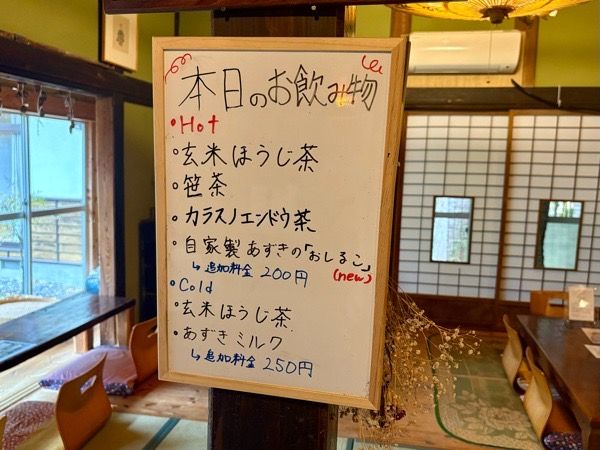 本日のお飲み物
・Hot
・玄米ほうじ茶
・笹茶
・カラスノエンドウ茶
・自家製あずきの「おしるこ」
↳追加料金 200円 (new)
・Cold
・玄米ほうじ茶
・あずきミルク
↳追加料金 250円